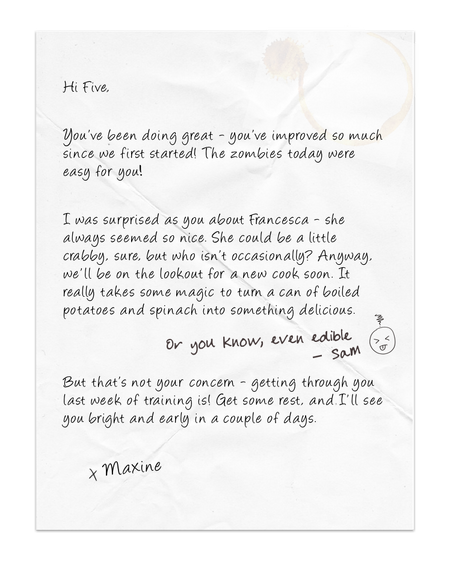 Hi Five,
You've been doing great - you've improved so much
since we first started! The zombies today were
easy for you!
I was surprised as you about Francesca - she
always seemed so nice. She could be a little
crabby, sure, but who isn't occasionally? Anyway,
we'll be on the lookout for a new cook soon. It
really takes some magic to turn a can of boiled
potatoes and spinach into something delicious.
Or you know, even edible
- Sam
But that's not your concern - getting through you
last week of training is! Get some rest, and I'll see
you bright and early in a couple of days.
x Maxine